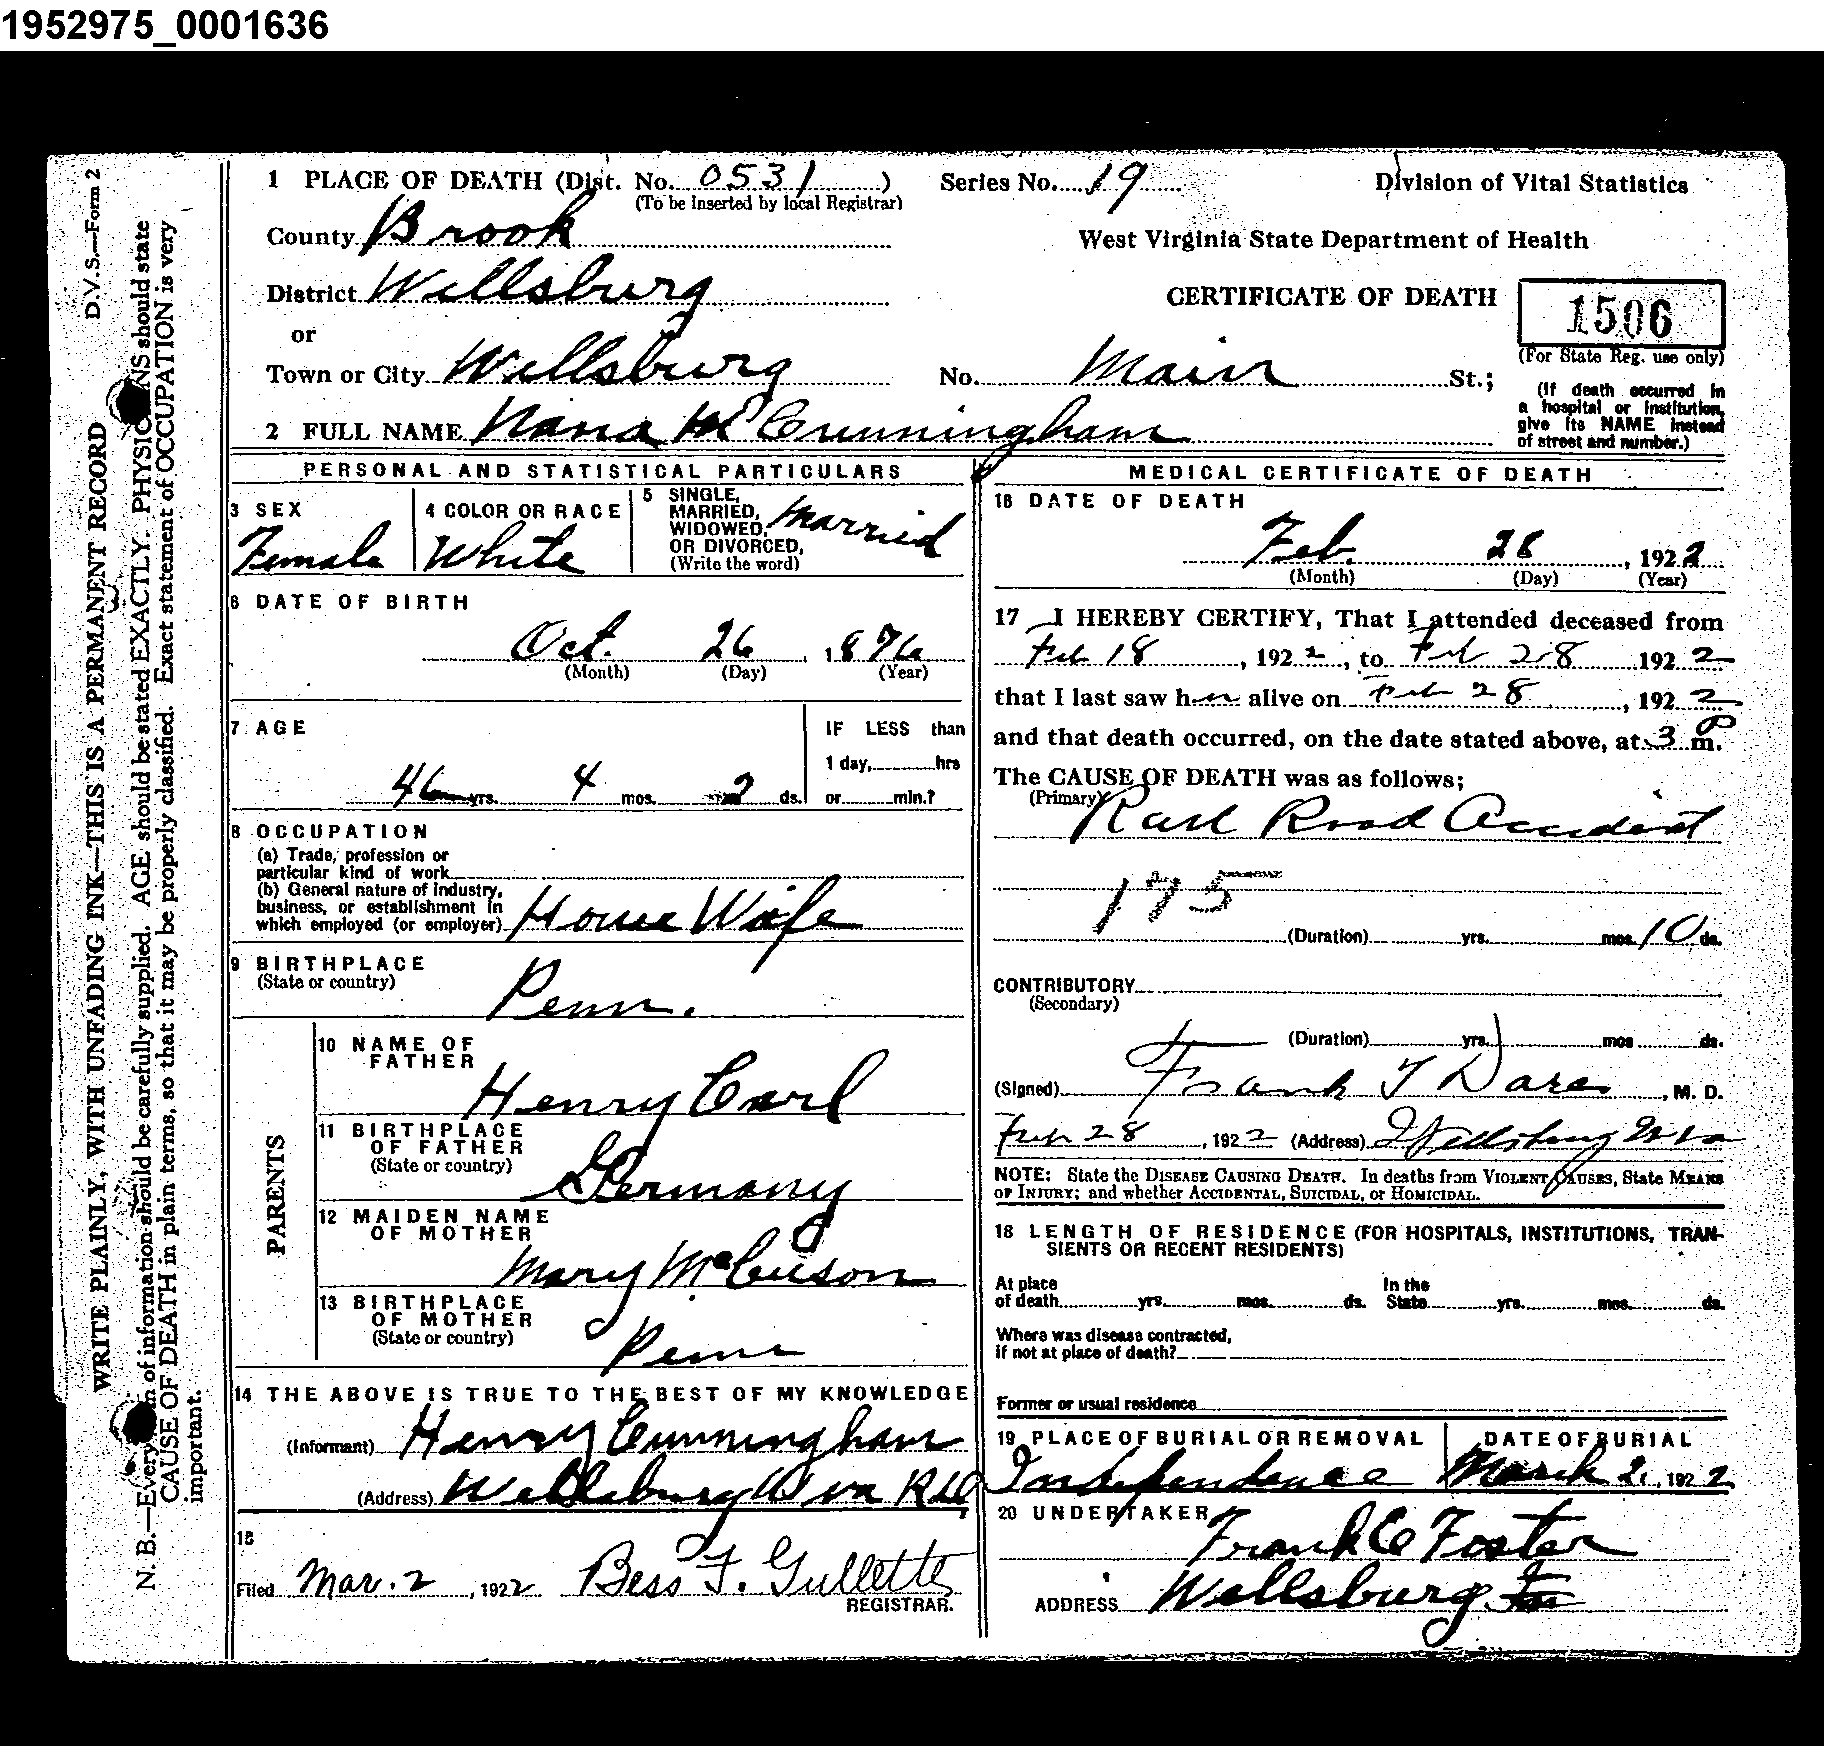 1952975_0001636
D.V.S.—Form 2
WRITE PLAINLY, WITH UNFADING INK—THIS IS A PERMANENT RECORD
N. B.—Every of information should be carefully supplied. AGE should be stated EXACTLY. PHYSICIANS should state
CAUSE OF DEATH in plain terms, so that it may be properly classified. Exact statement of OCCUPATION is very
important.
1 PLACE OF DEATH (Dist. No. 0531) Series No. 19 Division of Vital Statistics
(To be inserted by local Registrar)
County Brook
West Virginia State Department of Health
District Wellsburg
CERTIFICATE OF DEATH 1506
or
(For State Reg. use only)
Town or City Wellsburg No. Main St.;
(If death occurred in
a hospital or institution,
give its NAME instead
of street and number.)
2 FULL NAME Cunningham
PERSONAL AND STATISTICAL PARTICULARS
3 SEX
Female
4 COLOR OR RACE
White
5 SINGLE,
MARRIED,
WIDOWED,
OR DIVORCED,
(Write the word)
Married
6 DATE OF BIRTH
Oct. 26, 1876
(Month) (Day) (Year)
7 AGE
46 yrs. 4 mos. 2 ds.
IF LESS than
1 day, hrs
or min.?
8 OCCUPATION
(a) Trade, profession or
particular kind of work
(b) General nature of industry,
business, or establishment in
which employed (or employer) House Wife
9 BIRTHPLACE
(State or country)
Penn.
PARENTS
10 NAME OF
FATHER
Henry Carl
11 BIRTHPLACE
OF FATHER
(State or country)
Germany
12 MAIDEN NAME
OF MOTHER
Mary
13 BIRTHPLACE
OF MOTHER
(State or country)
Penn
14 THE ABOVE IS TRUE TO THE BEST OF MY KNOWLEDGE
(Informant) Henry Cunningham
(Address) Wellsburg W va
15
Filed Mar. 2, 1922 Bess F. Gullette
REGISTRAR.
MEDICAL CERTIFICATE OF DEATH
16 DATE OF DEATH
Feb. 28, 1922
(Month) (Day) (Year)
17 I HEREBY CERTIFY, That I attended deceased from
Feb 18, 1922, to Feb 28 1922
that I last saw her alive on Feb 28, 1922
and that death occurred, on the date stated above, at 3 P m.
The CAUSE OF DEATH was as follows;
(Primary) Rail Road Accident
175
(Duration) yrs. mos. 10 ds.
CONTRIBUTORY
(Secondary)
(Duration) yrs. mos. ds.
(Signed) Frank T , M. D.
Feb 28, 1922 (Address) Wellsburg W Va
NOTE: State the DISEASE CAUSING DEATH. In deaths from VIOLENT CAUSES, State MEANS
OF INJURY; and whether ACCIDENTAL, SUICIDAL, or HOMICIDAL.
18 LENGTH OF RESIDENCE (FOR HOSPITALS, INSTITUTIONS, TRAN-
SIENTS OR RECENT RESIDENTS)
At place In the
of death yrs. mos. ds. State yrs. mos. ds.
Where was disease contracted,
if not at place of death?
Former or usual residence
19 PLACE OF BURIAL OR REMOVAL
Independence
DATE OF BURIAL
March 2, 1922
20 UNDERTAKER
Frank C Foster
ADDRESS Wellsburg